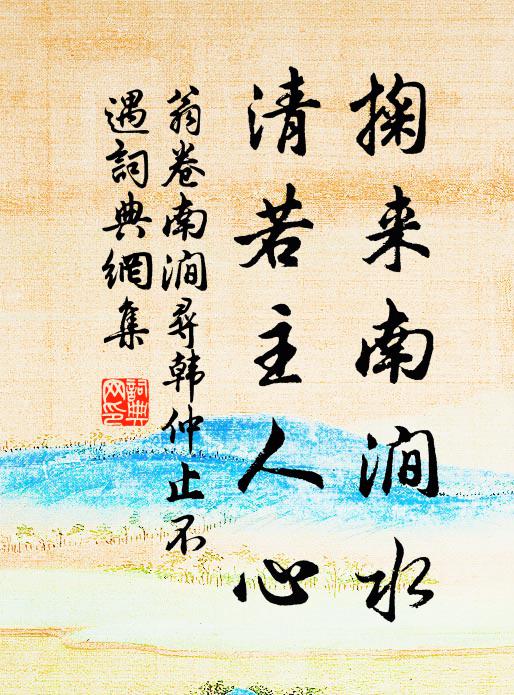 掬来南涧水
清若主人心
翁卷南涧寻韩仲止不
遇詞典網集
詞典
网印